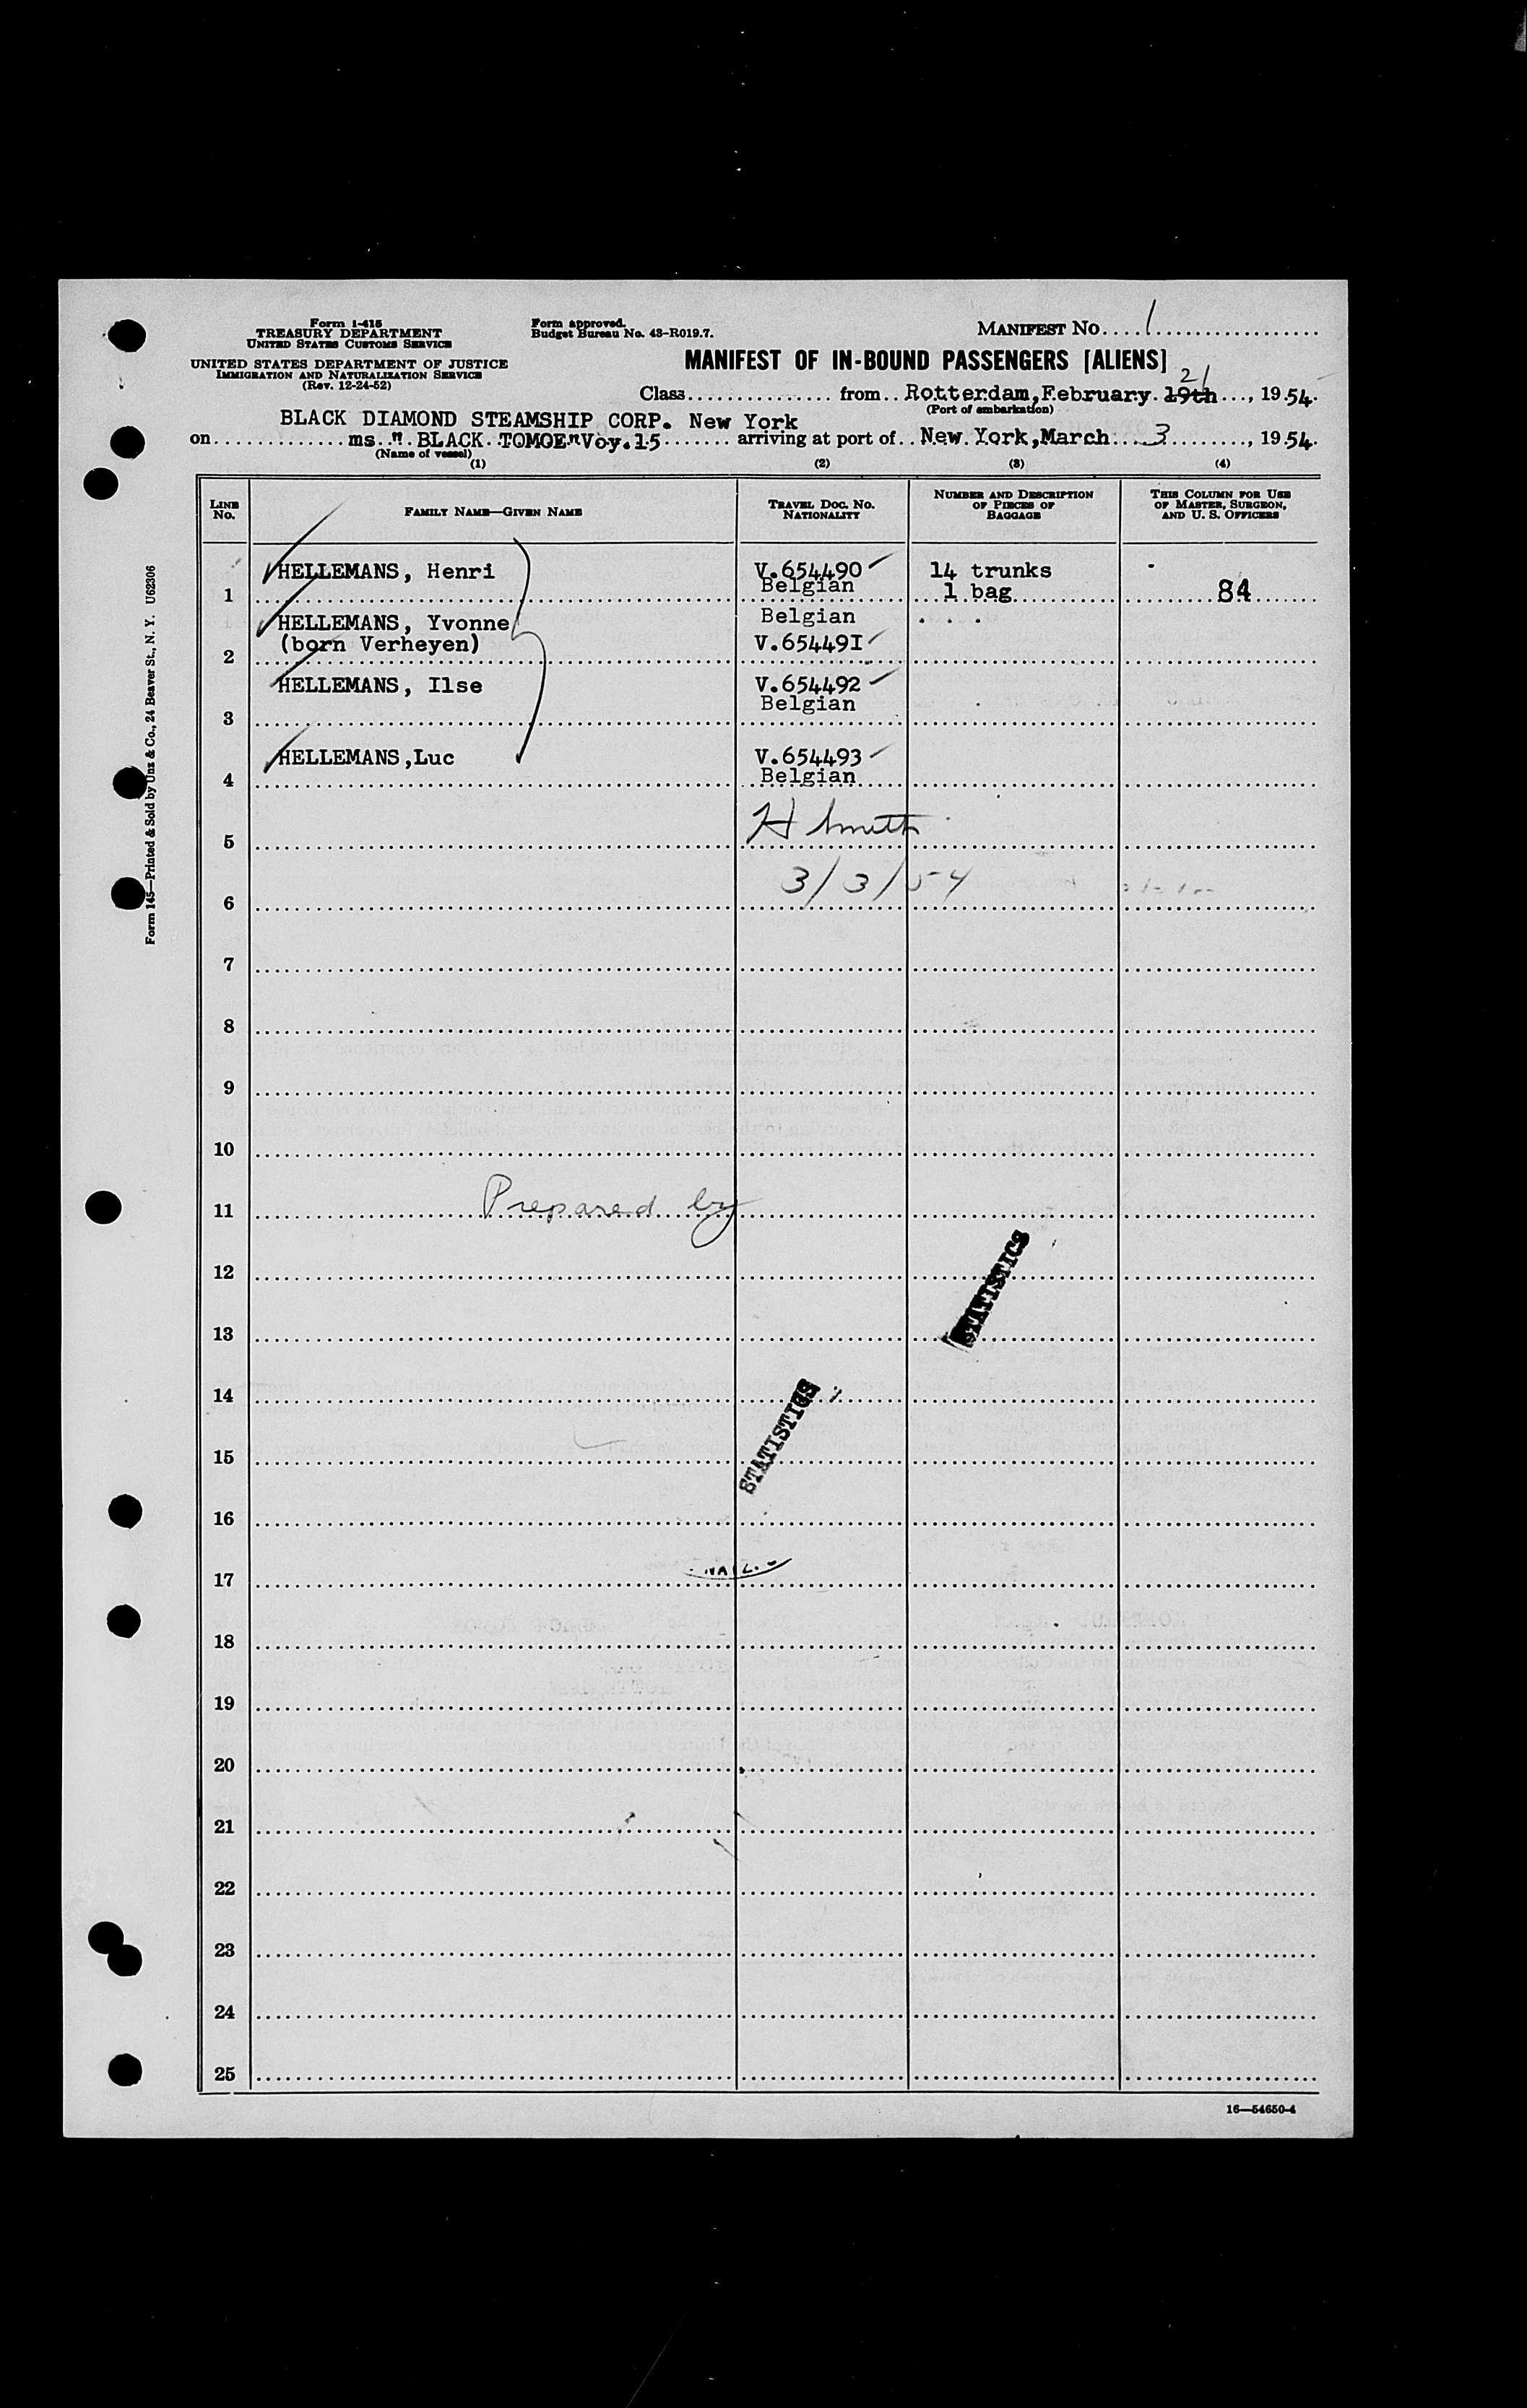 Form I-415
TREASURY DEPARTMENT
UNITED STATES CUSTOMS SERVICE
UNITED STATES DEPARTMENT OF JUSTICE
IMMIGRATION AND NATURALIZATION SERVICE
(Rev. 12-24-52)
Form approved.
Budget Bureau No. 43-R019.7.
MANIFEST NO. 1
MANIFEST OF IN-BOUND PASSENGERS [ALIENS]
21
Class from Rotterdam, February 19th, 1954.
(Port of embarkation)
BLACK DIAMOND STEAMSHIP CORP. New York
on ms " BLACK TOMOE" Voy.15 arriving at port of New York, March 3, 1954.
(Name of vessel)
(1) (2) (3) (4)
LINE NO. FAMILY NAME—GIVEN NAME TRAVEL DOC. NO. NATIONALITY NUMBER AND DESCRIPTION OF PIECES OF BAGGAGE THIS COLUMN FOR USE OF MASTER, SURGEON, AND U. S. OFFICERS
HELLEMANS, Henri V.654490 14 trunks
1 Belgian 1 bag 84
HELLEMANS, Yvonne Belgian
(born Verheyen) V.654491
2
HELLEMANS, Ilse V.654492
Belgian
3
HELLEMANS,Luc V.654493
4 Belgian
H Smith
5
3/3/54
6
7
8
9
10
11 Prepared by
12
STATISTICS
13
14
STATISTICS
15
16
17
18
19
20
21
22
23
24
25
16—54650-4
Form 145—Printed & Sold by Unz & Co., 24 Beaver St., N. Y. U62306